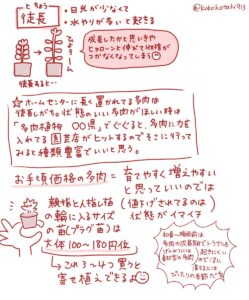 とちょう
徒長
・日光が少なくて
・水やりが多いと起きる
@kokokotaki913
ひょろーん
成長したかと思いきや
ヒョローンと伸びて収拾が
つかなくなってしまう
徒長すると…
☆ホームセンターに長く置かれてる多肉は
徒長しがち。状態のいい多肉がほしい時は
「多肉植物 〇〇県」でぐぐると、多肉に力を
入れてる園芸店がヒットするのでそこに行って
みると種類豊富でいいと思う。
お手頃価格の多肉=育てやすく増えやすい
と思っていいのでは
(値下げされてるのは
状態がイマイチ
親指と人指し指
の輪に入るサイズ
の苗(プラグ苗)は
大体100〜180円位
→これ3〜4つ買うと
寄せ植えできるよ
初夏〜梅雨前は
多肉の成長期でトラブルも
起きにくい
ので
ぴったりの季節だ